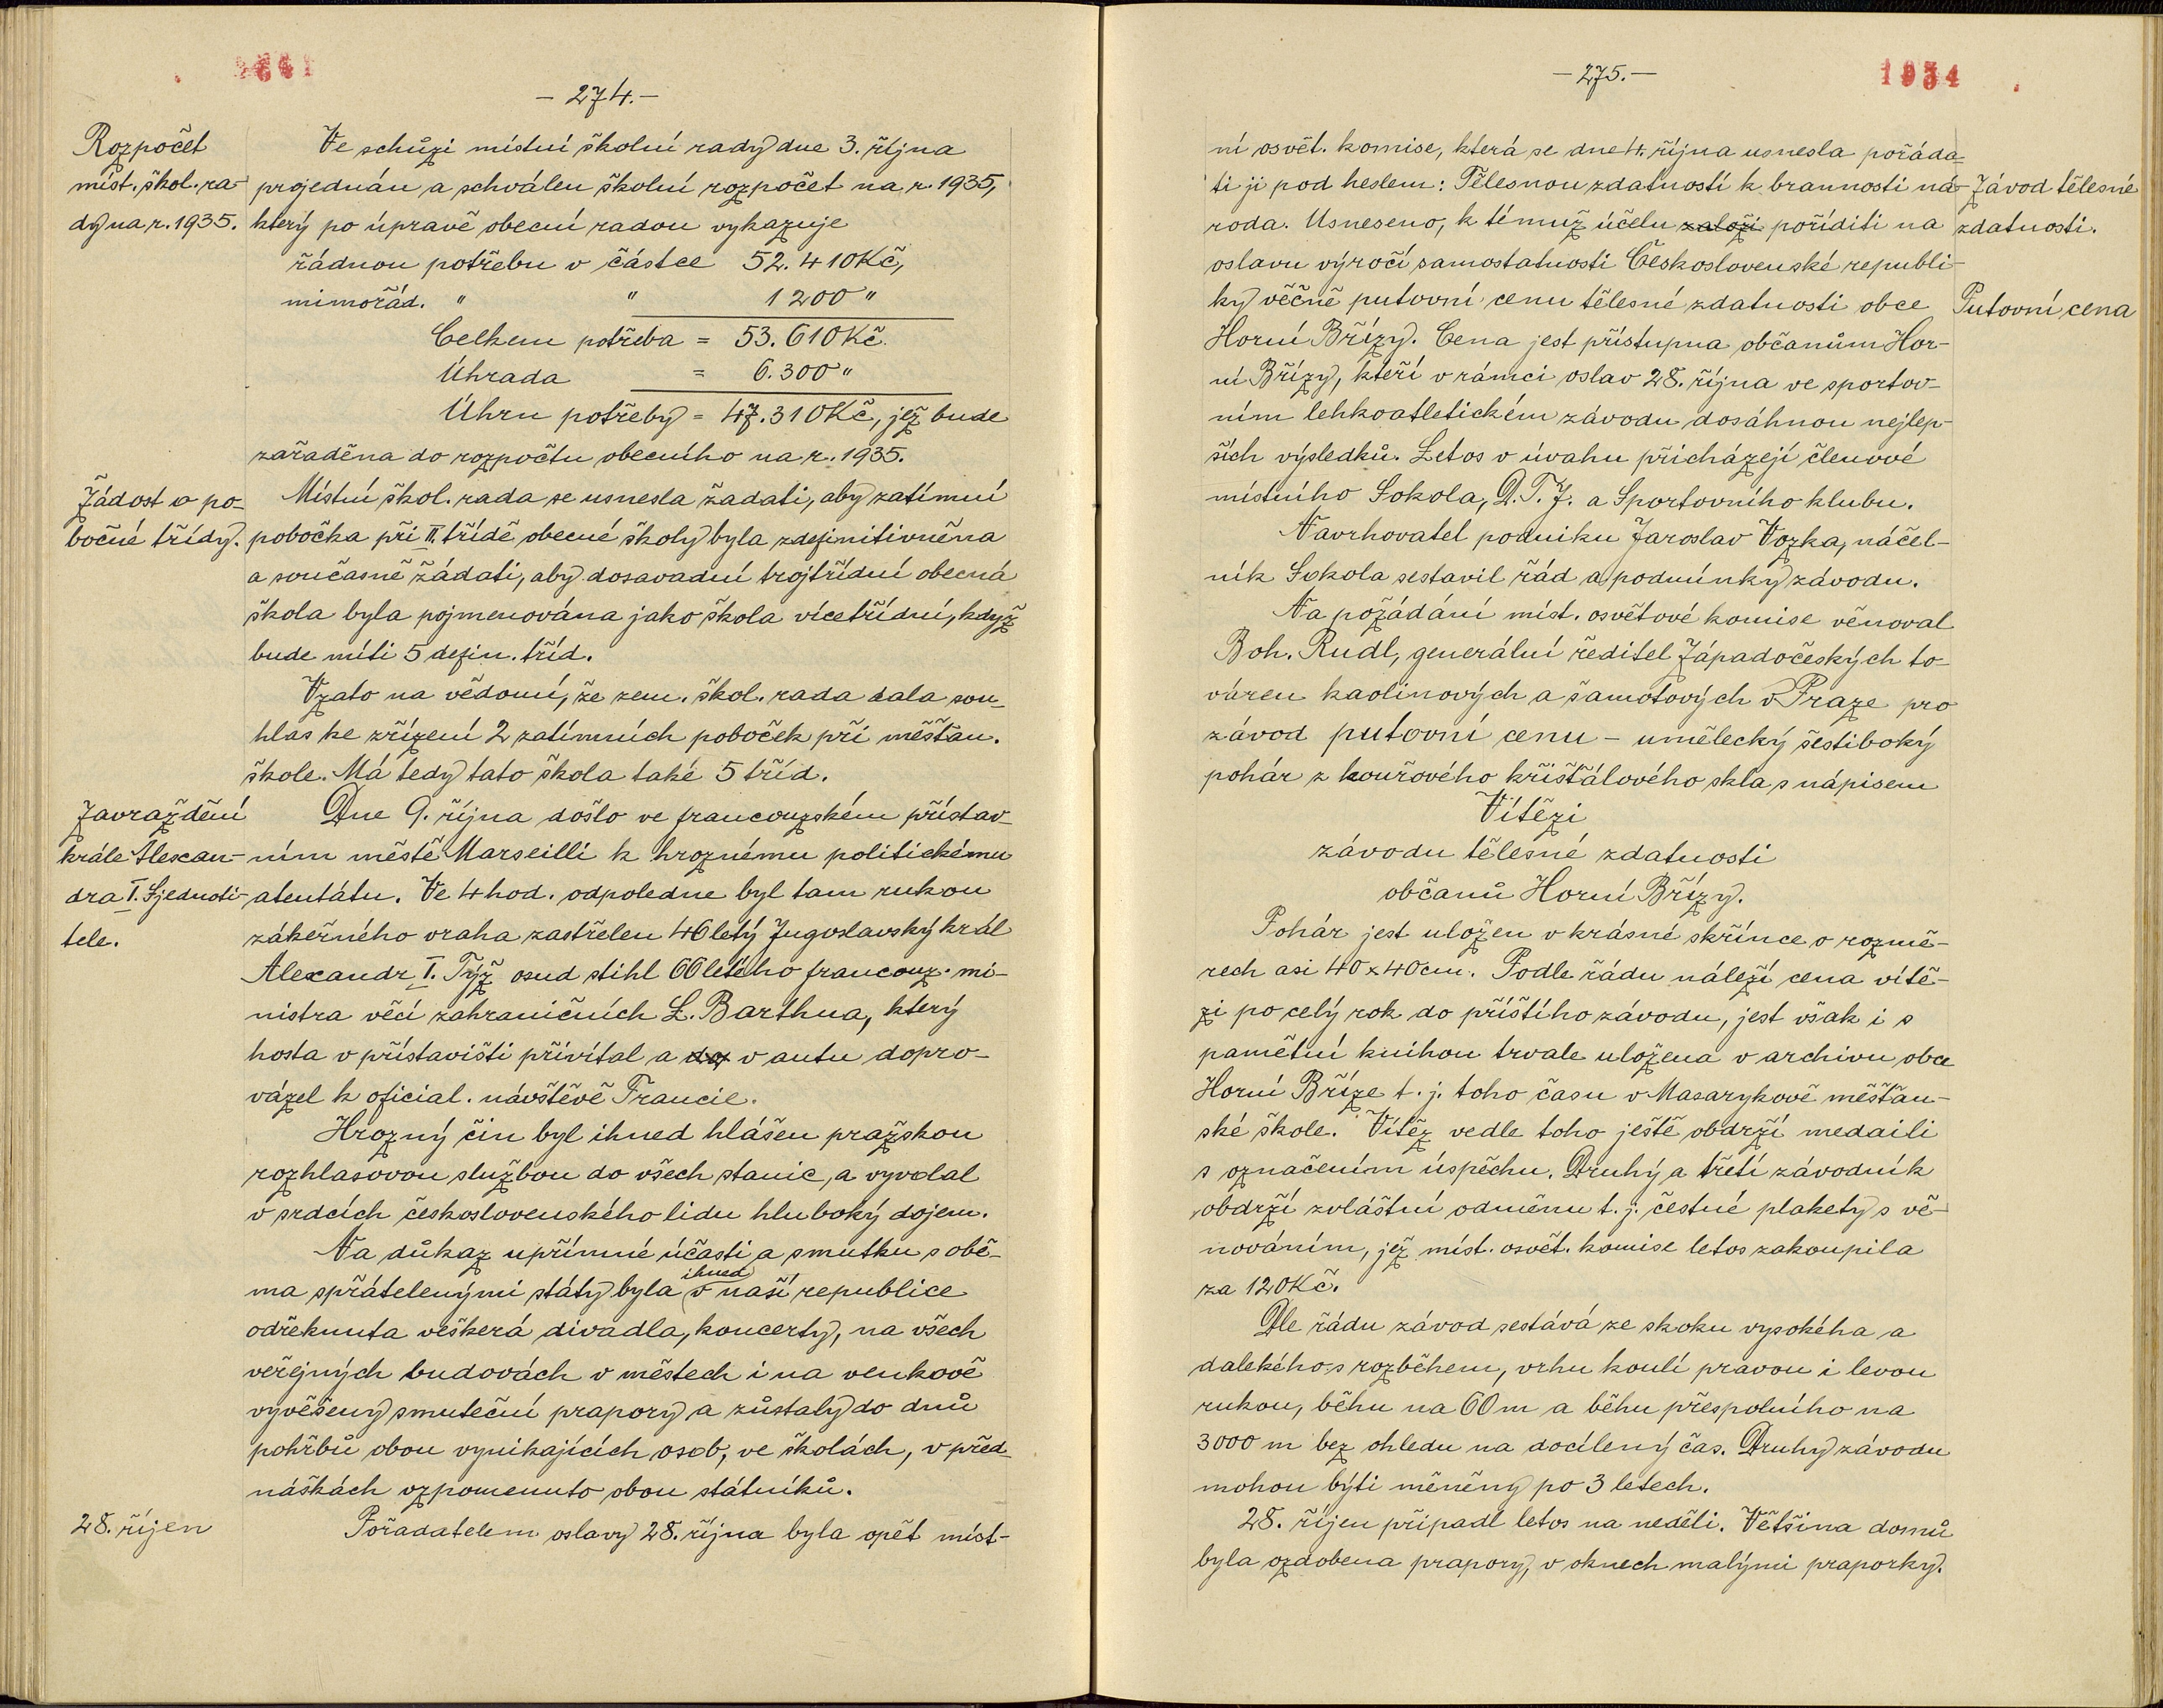 1934
- 274. -
Rozpočet
míst. škol. ra-
dy na r. 1935.
Ve schůzi místní školní rady dne 3. října
projednán a schválen školní rozpočet na r. 1935,
který po úpravě obecní radou vykazuje
řádnou potřebu v částce 52.410 Kč,
mimořád. " " 1200 "
Celkem potřeba = 53.610 Kč.
Úhrada = 6.300 "
Úhrn potřeby = 47.310 Kč, jež bude
zařaděna do rozpočtu obecního na r. 1935.
Žádost o po-
bočné třídy.
Místní škol. rada se usnesla žadati, aby zatímní
pobočka při II. třídě obecné školy byla zdefinitivněna
a současně žádati, aby dosavadní trojtřídní obecná
škola byla pojmenována jako škola vícetřídní, když
bude míti 5 defin. tříd.
Vzato na vědomí, že zem. škol. rada dala sou-
hlas ke zřízení 2 zatímních poboček při měšťan.
škole. Má tedy tato škola také 5 tříd.
Zavraždění
krále Alexan-
dra I. Sjednoti-
tele.
Dne 9. října došlo ve francouzském přístav-
ním městě Marseilli k hroznému politickému
atentátu. Ve 4 hod. odpoledne byl tam rukou
zákeřného vraha zastřelen 46letý Jugoslavský král
Alexandr I. Týž osud stihl 66letého francouz. mi-
nistra věcí zahraničních L. Barthua, který
hosta v přístavišti přivítal a do v autu dopro-
vázel k oficial. návštěvě Francie.
Hrozný čin byl ihned hlášen pražskou
rozhlasovou službou do všech stanic, a vyvolal
v srdcích československého lidu hluboký dojem.
Na důkaz upřímné účasti a smutku s obě-
ma spřátelenými státy byla ihned v naší republice
odřeknuta veškerá divadla, koncerty, na všech
veřejných budovách v městech i na venkově
vyvěšeny smuteční prapory a zůstaly do dnů
pohřbů obou vynikajících osob, ve školách, v před-
náškách vzpomenuto obou státníků.
28. říjen
Pořadatelem oslavy 28. října byla opět míst-
- 275. -
1934
ní osvět. komise, která se dne 4. října usnesla pořáda-
ti ji pod heslem: Tělesnou zdatností k brannosti ná-
roda. Usneseno, k témuž účelu založi poříditi na
oslavu výročí samostatnosti Československé republi-
ky věčně putovní cenu tělesné zdatnosti obce
Horní Břízy. Cena jest přístupna občanům Hor-
ní Břízy, kteří v rámci oslav 28. října ve sportov-
ním lehkoatletickém závodu dosáhnou nejlep-
ších výsledků. Letos v úvahu přicházejí členové
místního Sokola, D.T.J. a Sportovního klubu.
Závod tělesné
zdatnosti.
Putovní cena
Navrhovatel podniku Jaroslav Vozka, náčel-
ník Sokola sestavil řád a podmínky závodu.
Na požádání míst. osvětové komise věnoval
Boh. Rudl, generální ředitel Západočeských to-
váren kaolinových a šamotových v Praze pro
závod putovní cenu - umělecký šestiboký
pohár z kouřového křišťálového skla s nápisem
Vítězi
závodu tělesné zdatnosti
občanů Horní Břízy.
Pohár jest uložen v krásné skřínce o rozmě-
rech asi 40 x 40 cm. Podle řádu náleží cena vítě-
zi po celý rok do příštího závodu, jest však i s
pamětní knihou trvale uložena v archivu obce
Horní Bříze t. j. toho času v Masarykově měšťan-
ské škole. Vítěz vedle toho ještě obdrží medaili
s označením úspěchu. Druhý a třetí závodník
obdrží zvláštní odměnu t. j. čestné plakety s vě-
nováním, jež míst. osvět. komise letos zakoupila
za 120 Kč.
Dle řádu závod sestává ze skoku vysokého a
dalekého s rozběhem, vrhu koulí pravou i levou
rukou, běhu na 60 m a běhu přespolního na
3000 m bez ohledu na docílený čas. Druhy závodu
mohou býti měněny po 3 letech.
28. říjen připadl letos na neděli. Většina domů
byla ozdobena prapory, v oknech malými praporky.